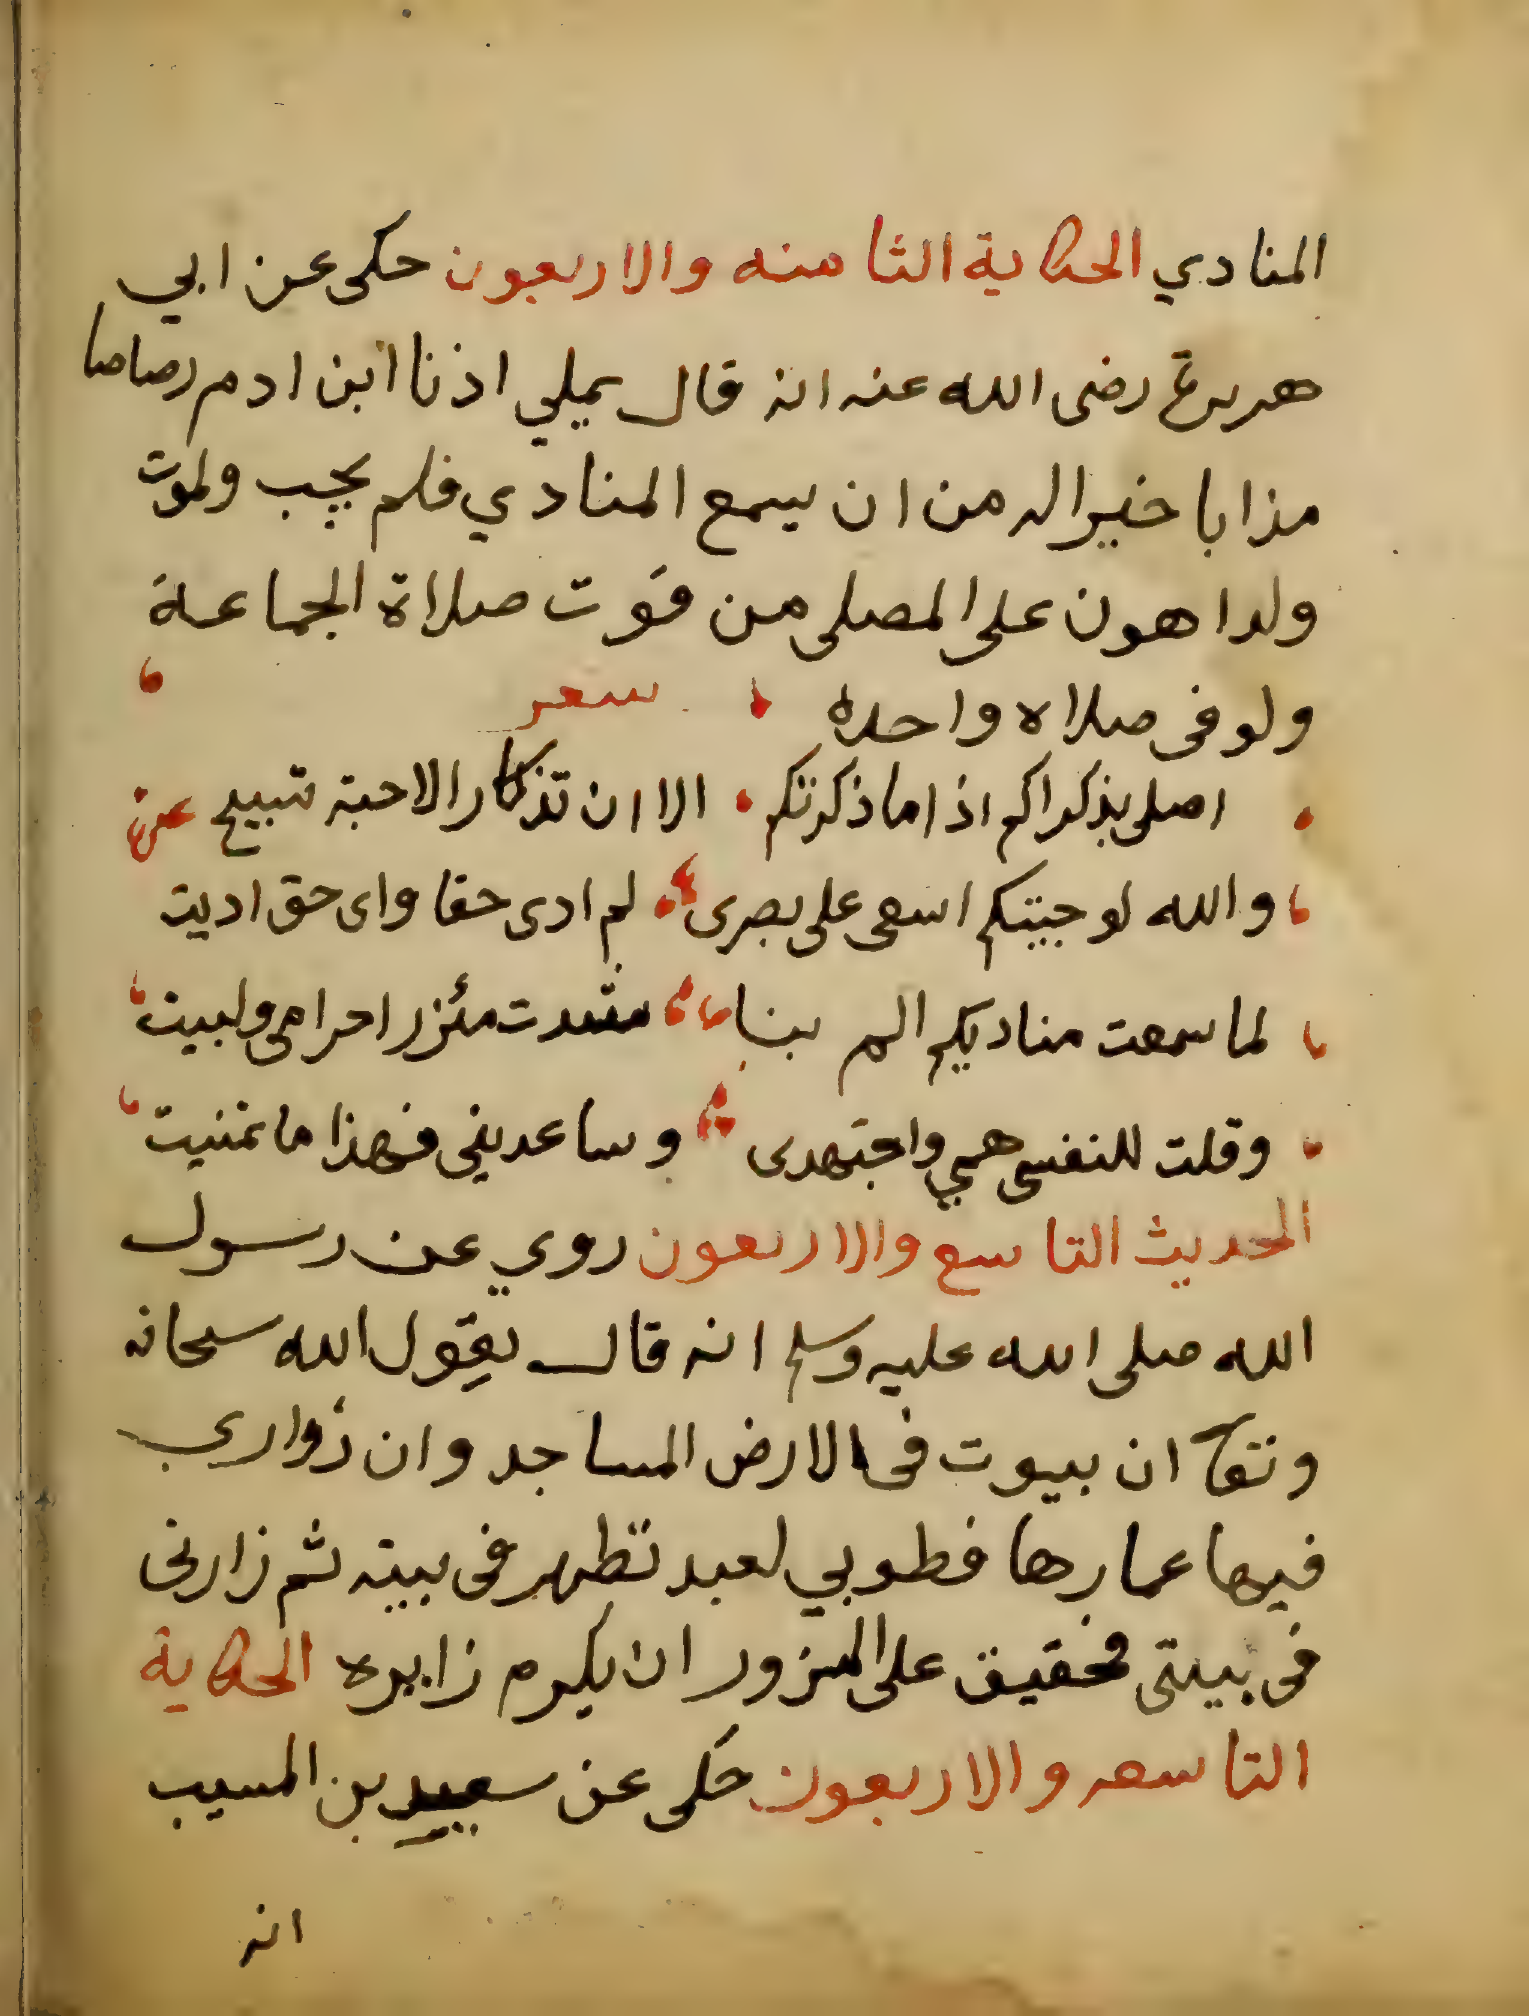 المنادي الحكاية الثامنه والاربعون حكى عن ابي
هريرة رضى الله عنه انه قال يملي اذنا ابن ادم رصاصا
مذابا خير اله من ان يسمع المنادي فلم يجيب ولموت
ولد اهون على المصلى من فوت صلاة الجماعة
ولو فى صلاه واحده سعر
اصلى بذكراكم اذا ما ذكرتكم الا ان تذكار الاحبة تبيح
والله لو جيتكم اسعى على بصرى لم ادى حقا واى حق اديت
لما سمعت مناديكم الم بنا شددت مئزر احرامى ولبيت
وقلت للنفس هبي واجتهدى وساعديني فهذا ما تمنيت
الحديث التاسع والاربعون روي عن رسول
الله صلى الله عليه وسلم انه قال يقول الله سبحانه
وتعا ان بيوت فى الارض المساجد وان زواري
فيها عمارها فطوبي لعبد تطهر فى بيته ثم زارنى
فى بيتى فحقيق على المزور ان يكرم زايره الحكاية
التاسعه والاربعون حكى عن سعييد بن المسيب
انه